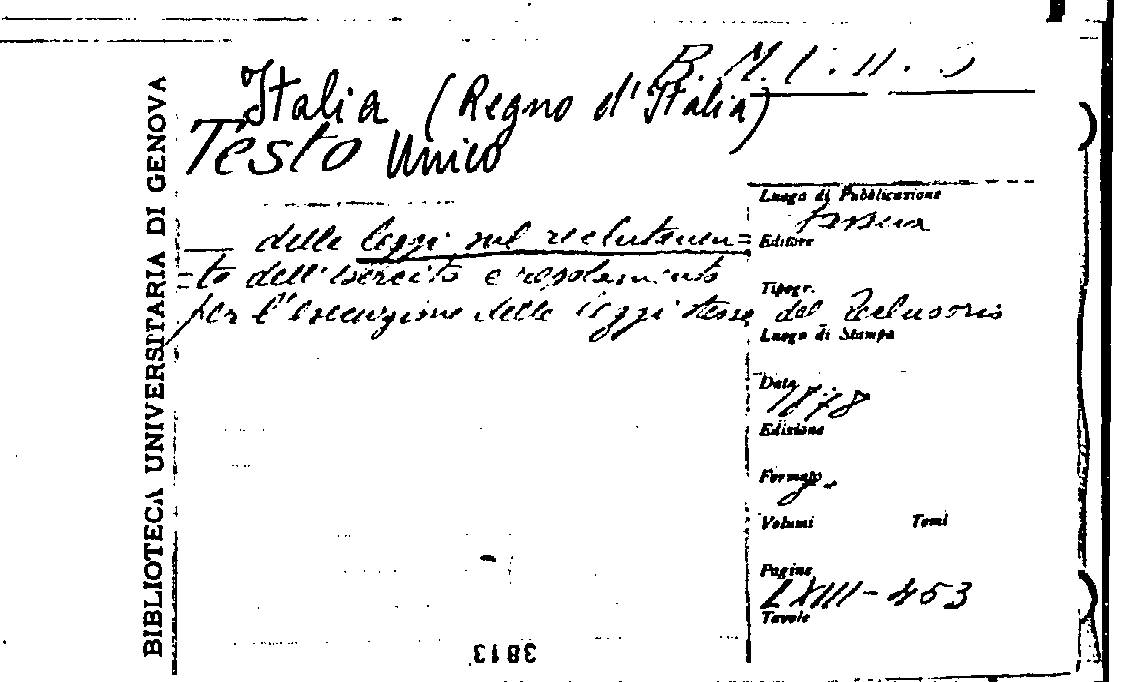 BIBLIOTECA UNIVERSITARIA DI GENOVA
B. M.
Italia (Regno d'Italia)
Testo Unico
delle leggi sul reclutamen=
=to dell'esercito e regolamento
per l'esecuzione delle leggi stesse
Luogo di Pubblicazione
Editore
Tipogr.
del Reclusorio
Luogo di Stampa
Data
1878
Edizione
Formato
8.
Volumi Tomi
Pagine
LXIII-453
Tavole
3813